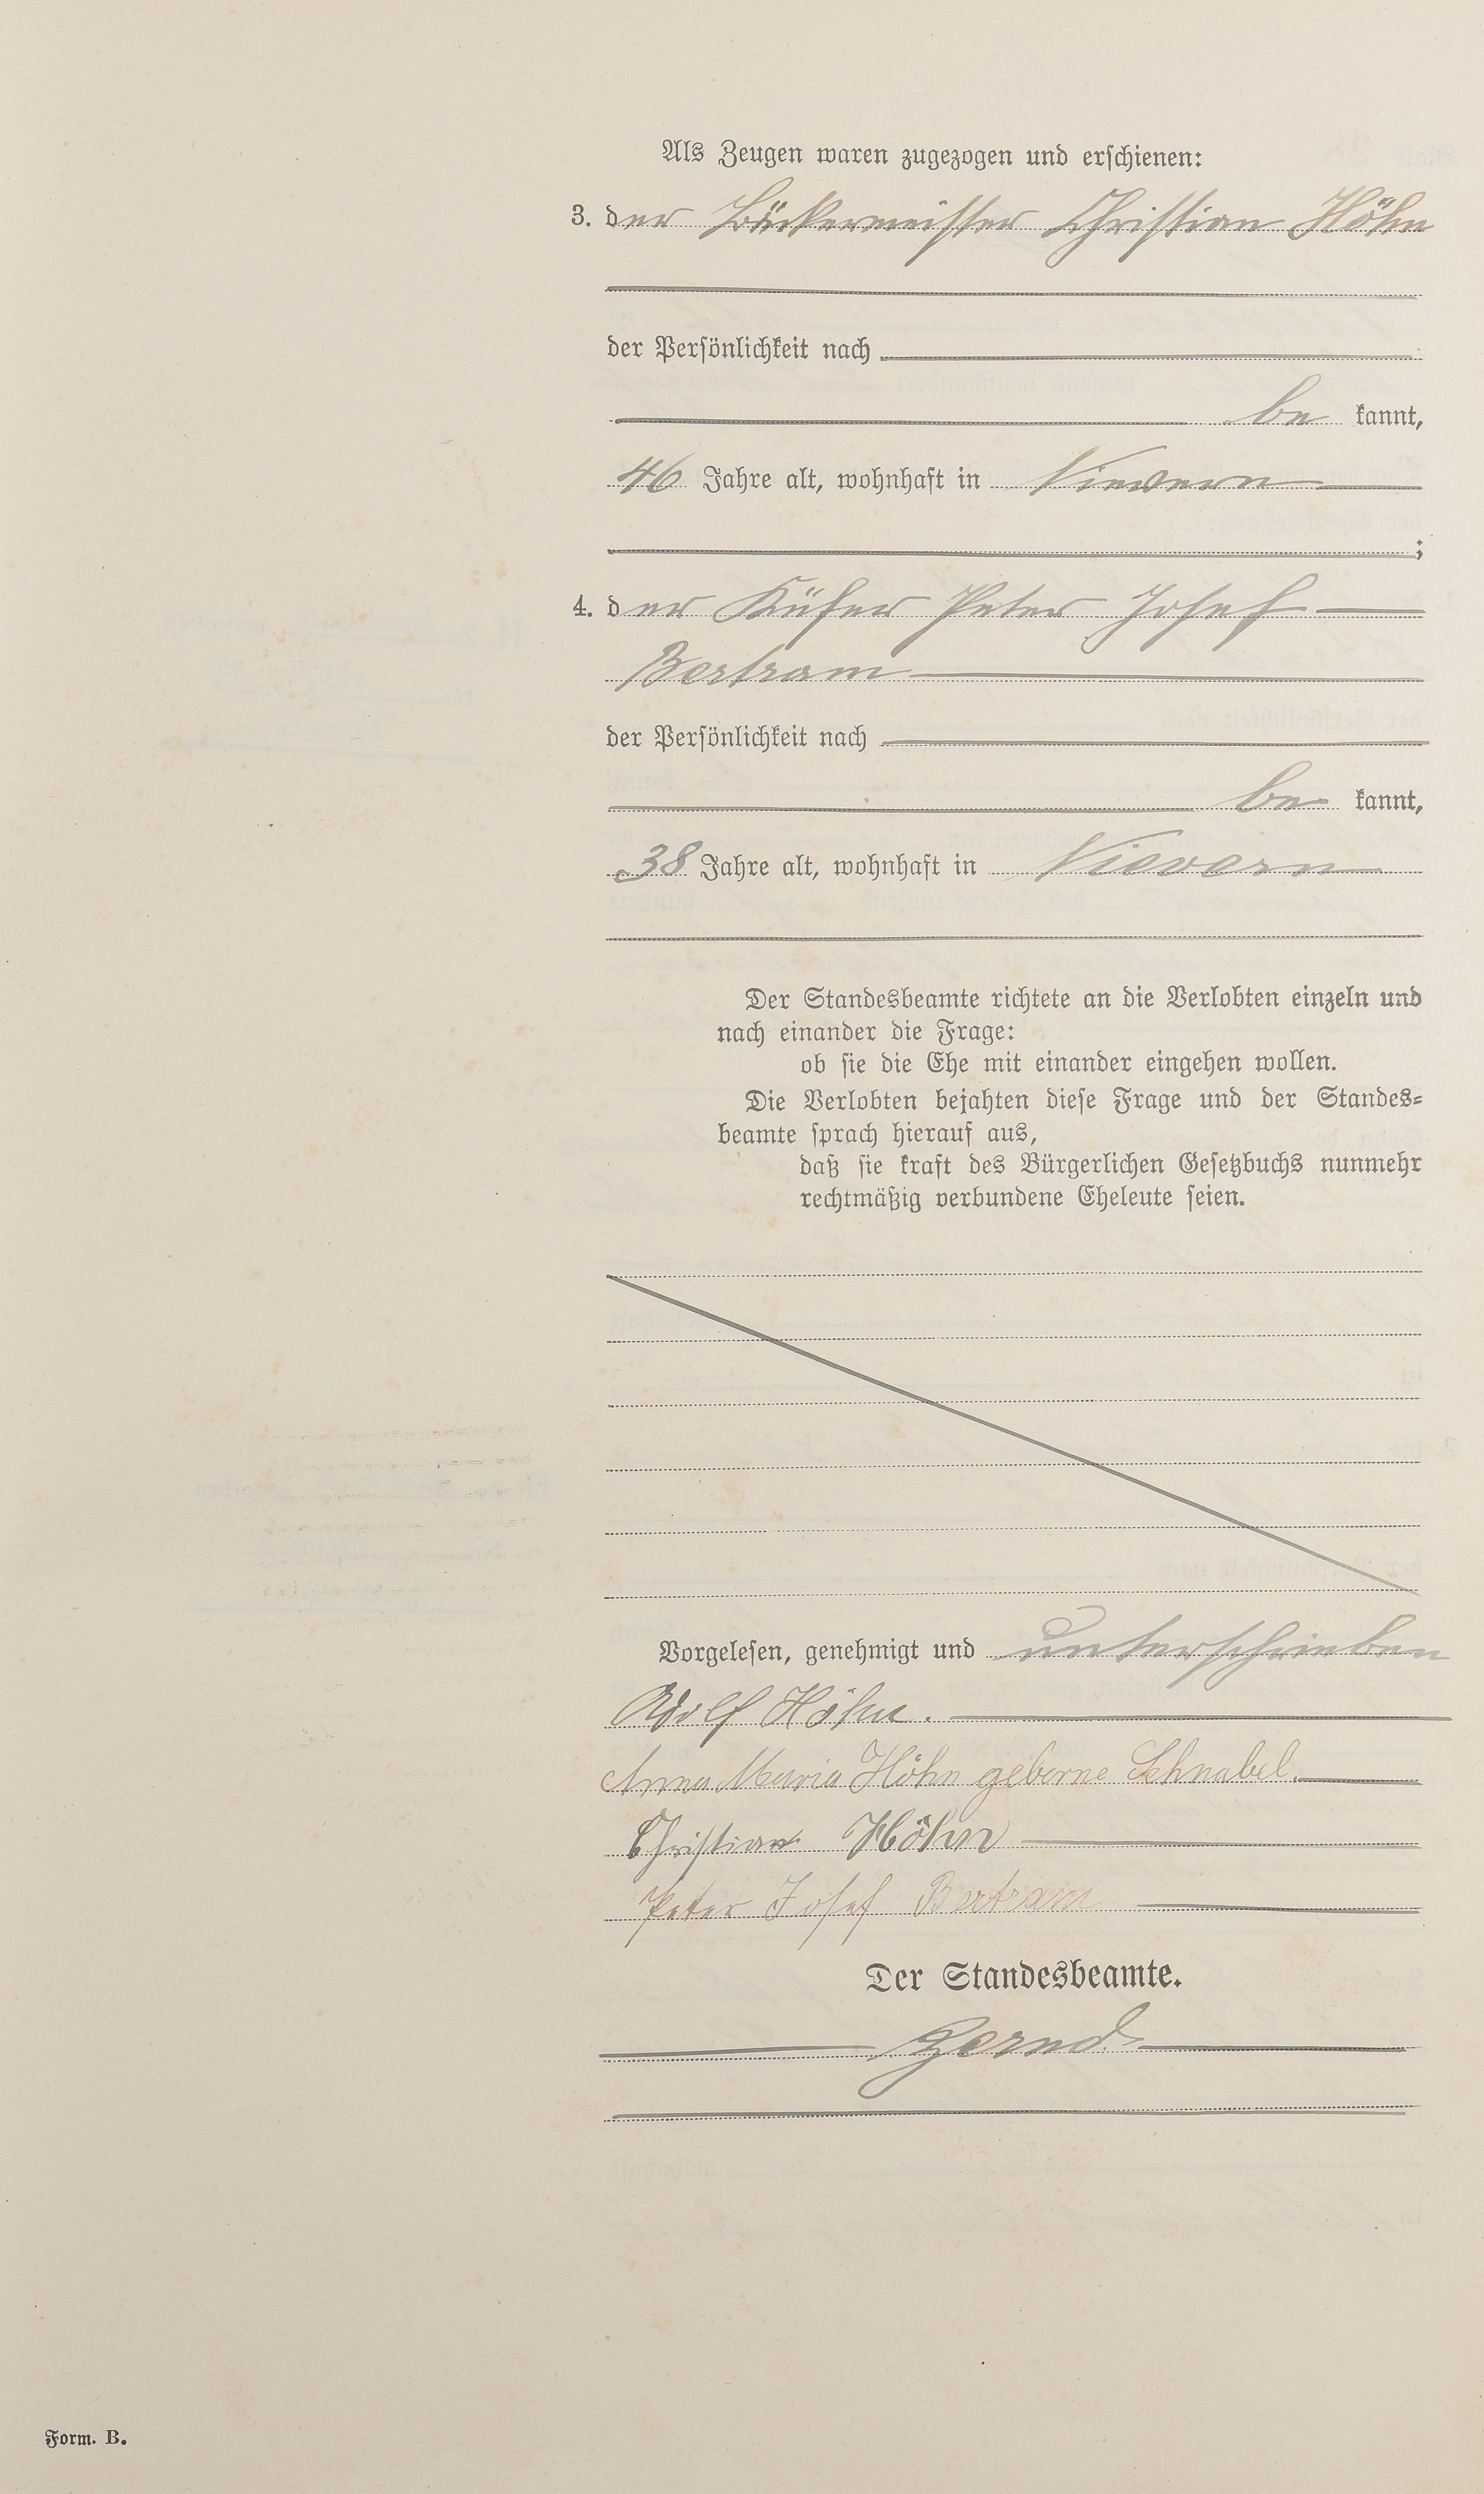 Als Zeugen waren zugezogen und erschienen:
3. der Bäckermeister Christian Höhn
der Persönlichkeit nach
be kannt,
46 Jahre alt, wohnhaft in Nievern
;
4. der Küfer Peter Josef
Bertram
der Persönlichkeit nach
be kannt,
38 Jahre alt, wohnhaft in Nievern
Der Standesbeamte richtete an die Verlobten einzeln und
nach einander die Frage:
ob sie die Ehe mit einander eingehen wollen.
Die Verlobten bejahten diese Frage und der Standes-
beamte sprach hierauf aus,
daß sie kraft des Bürgerlichen Gesetzbuchs nunmehr
rechtmäßig verbundene Eheleute seien.
Vorgelesen, genehmigt und unterschrieben
Adolf Höhn.
Anna Maria Höhn geborne Schnabel.
Christian Höhn
Peter Josef Bertram
Der Standesbeamte.
Form. B.